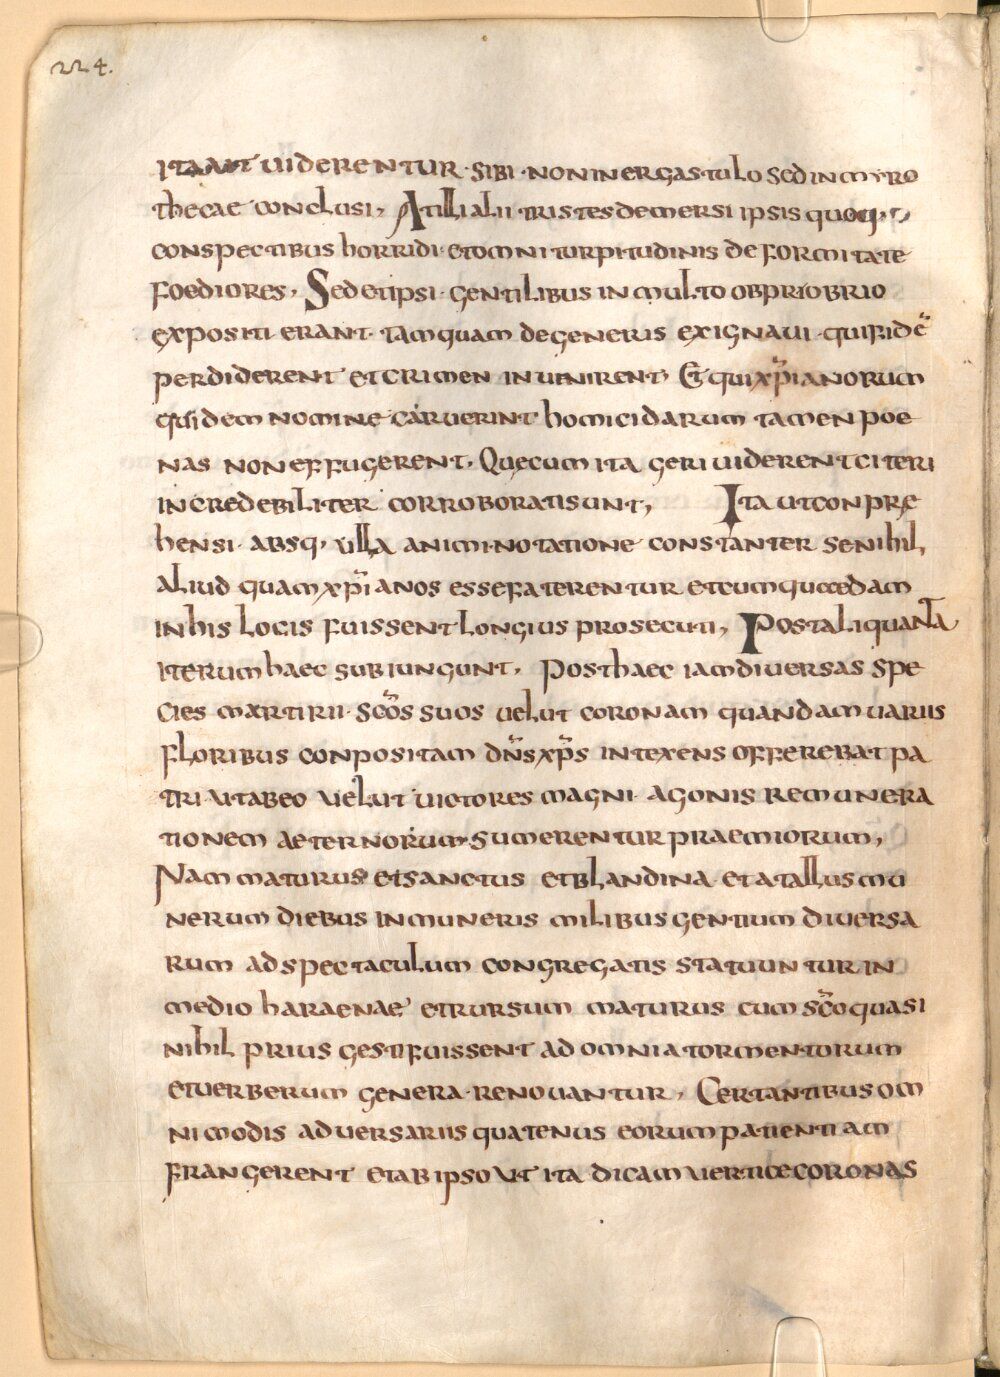 224.
ita ut uiderentur · sibi · non in ergastulo sed in myro
thecae conclusi, At illi alii tristes demersi ipsis quoq;
conspectibus horridi · et omni turpitudinis deformitate
foediores, Sed et ipsi · gentilibus in multo obpriobrio
expositi erant · tamquam degeneris ex ignaui · qui fidē
perdiderent et crimen inuenirent, Et qui xp̄ianorum
quidem nomine caruerint homicidarum tamen poe
nas non effugerent, Quę cum ita geri uiderent citeri
incredebiliter corroborati sunt, Ita ut conprę
hensi · absq; ulla animi notatione constanter se nihil
aliud quam xp̄ianos esse faterentur et cum quædam
in his locis fuissent longius prosecuti, Post aliquanta
iterum haec subiungunt, Post haec iam diuersas spe
cies martirii · sc̄os suos uelut coronam quandam uariis
floribus conpositam dn̄s xp̄s intexens offerebat pa
tri · ut ab eo uelut uictores magni agonis remunera
tionem aeternorum sumerentur praemiorum,
Nam maturus et sanctus et blandina et atallus mu
nerum diebus in muneris milibus gentium diuersa
rum ad spectaculum congregatis statuuntur in
medio haraenae et rursum maturus cum sc̄o quasi
nihil prius gesti fuissent ad omnia tormentorum
et uerberum genera · renouantur, Certantibus om
nimodis aduersariis quatenus eorum patientiam
frangerent et ab ipso ut ita dicam uertice coronas